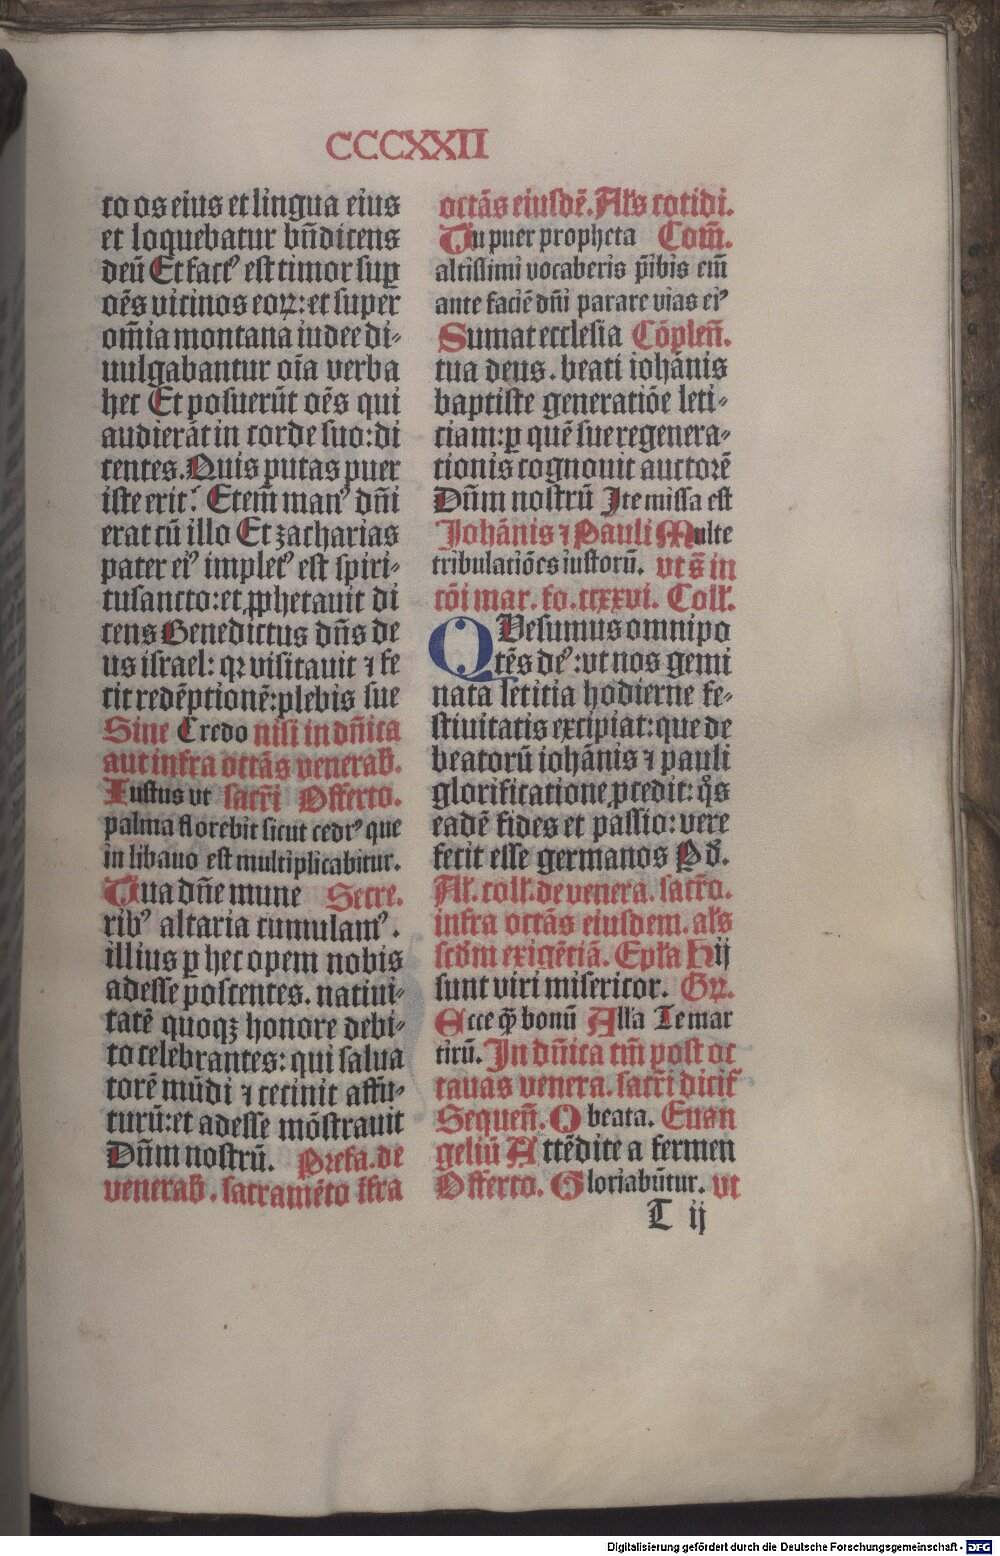 CCCXXII
to os eius et lingua eius
et loquebatur bn̄dicens
deū Et factꝰ est timor suꝑ
oēs vicinos eoꝝ: et super
om̄ia montana iudee di-
uulgabantur oīa verba
hec Et posuerūt oēs qui
audierāt in corde suo: di
centes. Quis putas puer
iste erit? Etem̄ manꝰ dn̄i
erat cū illo Et zacharias
pater eiꝰ impletꝰ est spiri-
tusancto: et ꝓphetauit di
cens Benedictus dn̄s de
us israel: qꝛ visitauit ⁊ fe
cit redēptionē: plebis sue
Sine Credo nisi in dn̄ica
aut infra octās venerab̄.
Iustus vt sacr̄i Offerto.
palma florebit sicut cedrꝰ que
in libano est multiplicabitur.
Tua dn̄e mune Secre.
ribꝰ altaria cumulamꝰ.
illius ꝑ hec opem nobis
adesse poscentes. natiui-
tatē quoqꝫ honore debi-
to celebrantes: qui salua
torē mūdi ⁊ cecinit affu-
turū: et adesse mōstrauit
Dn̄m nostrū. Prefa. de
venerab̄. sacramēto īfra
octās eiusdē. Al̄s cotidi.
Tu puer propheta Com̄.
altissimi vocaberis p̄ibis em̄
ante faciē dn̄i parare vias eiꝰ
Sumat ecclesia Cōplen̄.
tua deus. beati iohānis
baptiste generatiōe leti-
ciam: ꝑ quē sue regenera-
tionis cognouit auctorē
Dn̄m nostrū Ite missa est
Johānis ⁊ Pauli Multe
tribulatiōes iustorū. vt s̄ in
cōi mar. fo. ccxxvi. Coll̄.
QVesumus omnipo
tēs deꝰ: vt nos gemi
nata letitia hodierne fe-
stiuitatis excipiat: que de
beatorū iohānis ⁊ pauli
glorificatione ꝓcedit: qͦs
eadē fides et passio: vere
fecit esse germanos Pd̄.
Al̄. coll̄. de venera. sacr̄o.
infra octās eiusdem. al̄s
scd̄m exigētiā. Epl̄a Hij
sunt viri misericor. Gꝛ.
Ecce q̄ꝫ bonū Alla Te mar
tirū. In dn̄ica tm̄ post oc
tauas venera. sacr̄i dicit᷑
Sequen̄. O beata. Euan
geliū Attēdite a fermen
Offerto. Gloriabūtur. vt
T ij
Digitalisierung gefördert durch die Deutsche Forschungsgemeinschaft - DFG